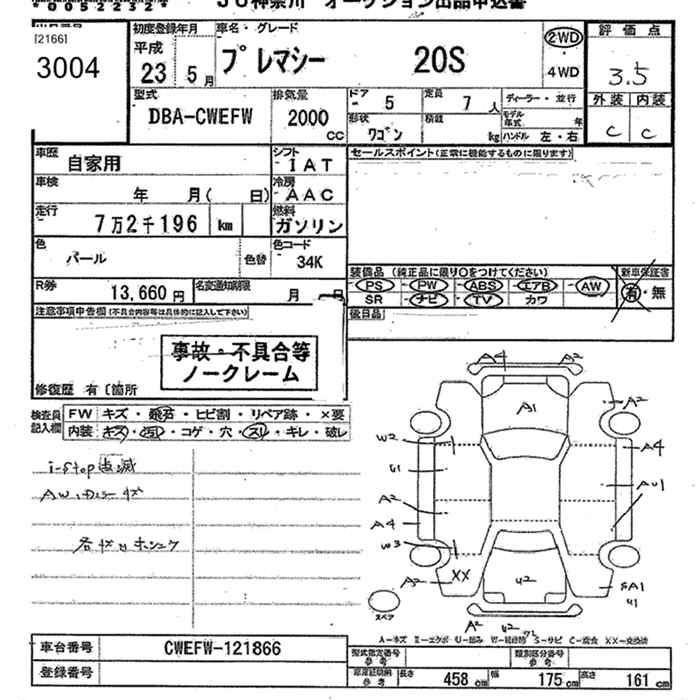 00522324
JU神奈川 オークション出品申込書
[2166]
3004
初度登録年月
平成
23年 5月
車名・グレード
プレマシー 20S
2WD
4WD
評価点
3.5
外装 内装
C C
型式
DBA-CWEFW
排気量
2000 CC
ドア 5
定員 7人
形状 ワゴン
積載 kg
ディーラー・並行
モデル年式 年
ハンドル 左・右
車歴 自家用
シフト IAT
車検 年 月( 日)
冷房 AAC
走行 7万2千196 km
燃料 ガソリン
色 パール 色替
色コード 34K
R券 13,660円
名変通知期限 月
セールスポイント(正常に機能するものに限ります)
装備品(純正品に限り○をつけてください)
PS PW ABS エアB AW
SR ナビ TV カワ
新車保証書
有・無
後日品
注意事項申告欄(不具合内容等は具体的に記入して下さい)
事故・不具合等
ノークレーム
修復歴 有〔箇所
検査員記入欄
FW キズ・飛石・ヒビ割・リペア跡・×要
内装 キズ・汚レ・コゲ・穴・スレ・キレ・破レ
i-stop点滅
AW、
A4 A2
A1
A2
W2
A4
U1
AU1
A2
A4
W3
A2
XX
U2
SA1
U1
A2 U2
スペア
A-キズ E-エクボ U-凹み W-補修跡 S-サビ C-腐食 XX-交換済
車台番号 CWEFW-121866
登録番号
型式指定番号 参考
類別区分番号 参考
車検証記載 参考
長さ 458 cm
幅 175 cm
高さ 161 cm